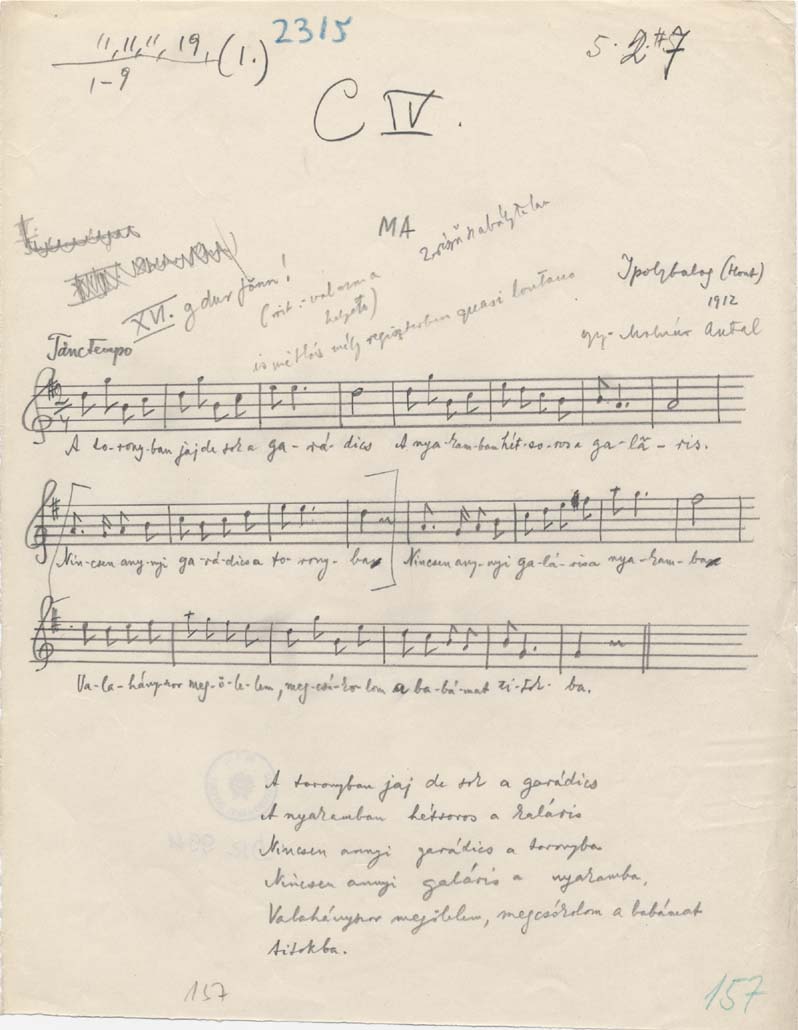 11, 11, 11, 19, (1.)
1-9
2315
5. 2. #7
C IV.
MA
XVI. g dur fönn!
Ipolybalog (Hont)
1912
gy. Molnár Antal
Tánctempo
A to-rony-ban jaj de sok a ga-rá-dics A nya-kam-ban hét-so-ros a ga-lá-ris.
Nin-csen any-nyi ga-rá-dics a to-rony-ba Nincsen any-nyi ga-lá-ris a nya-kam-ba
Va-la-hány-szor meg-ö-le-lem, meg-csó-ko-lom a ba-bá-mat ti-tok-ba.
A toronyban jaj de sok a garádics
A nyakamban hétsoros a kaláris
Nincsen annyi garádics a toronyba
Nincsen annyi galáris a nyakamba,
Valahányszor megölelem, megcsókolom a babámat
titokba.
157
157